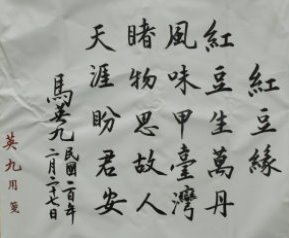 紅豆緣
紅豆生萬丹
風味甲臺灣
睹物思故人
天涯盼君安
馬英九
民國一百年
二月二十七日
英九用箋